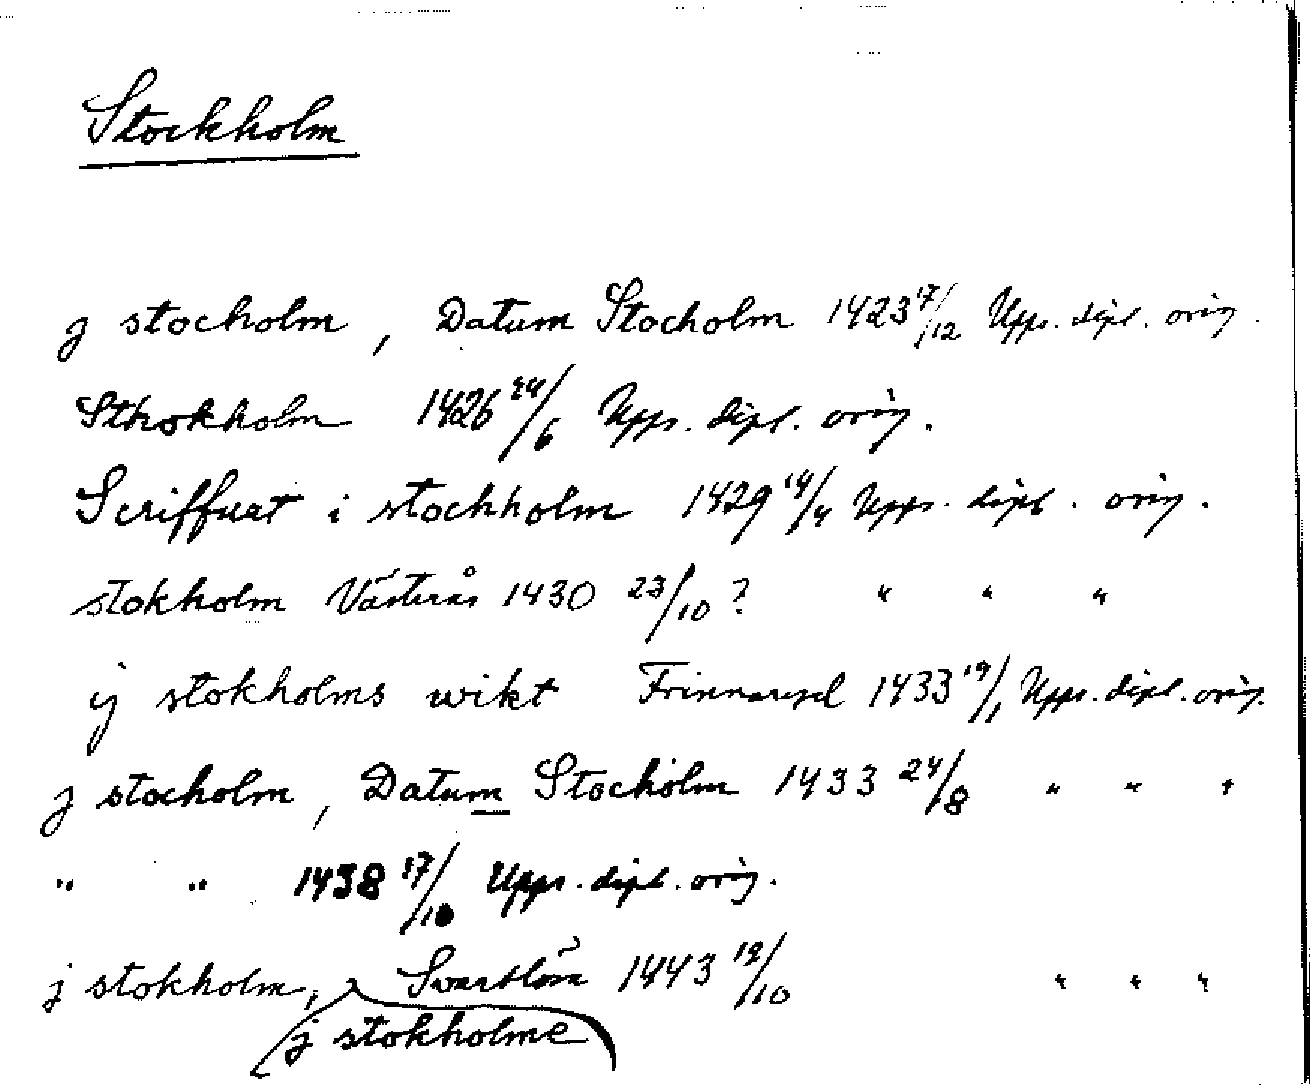 Stockholm
j stocholm, Datum Stocholm 1423 17/12 Upps. dipl. orig.
Sthokholm 1426 24/6 Upps. dipl. orig.
Scriffuat i stockholm 1429 14/4 Upps. dipl. orig.
stokholm Västerås 1430 23/10? " " "
ij stokholms wikt 1433 19/1 Upps. dipl. orig.
j stocholm, Datum Stocholm 1433 24/8 " " "
" " 1438 17/10 Upps. dipl. orig.
j stokholm, 1443 12/10 " " "
j stokholme